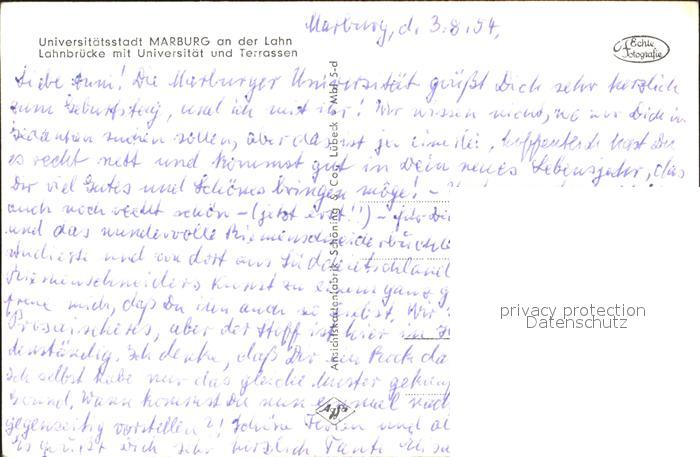 Marburg, d. 3.8.54,
Universitätsstadt MARBURG an der Lahn
Lahnbrücke mit Universität und Terrassen
Echte
Fotografie
Liebe ! Die Marburger Universität grüßt Dich sehr herzlich
zum Geburtstag, und ich mit ihr! Wir wissen nicht, wo wir Dich in
Gedanken suchen sollen, aber das ist ja einerlei, hoffentlich hast Du
es recht nett und kommst gut in Dein neues Lebensjahr, das
Dir viel Gutes und Schönes bringen möge! –
auch noch recht schön – (jetzt erst!!) – für
und das wundervolle Riemenschneiderbüchl
und von dort aus Süddeutschland
Riemenschneiders Kunst zu einem ganz
freue mich, daß Du ihn auch so liebst. Wir
Prosaischeres, aber der Stoff ist hier in
denständig. Ich denke, daß Dir ein Rock da
Ich selbst habe nur das gleiche Muster
Wann kommst Du nun einmal
gegenseitig vorstellen?! Schöne Ferien und
Es grüßt Dich sehr herzlich Tante
Ansichtskartenfabrik Schöning & Co., Lübeck Mbl 5-d
Agfa
privacy protection
Datenschutz